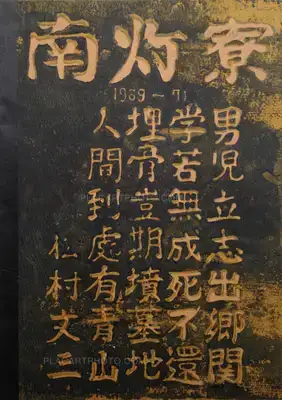 南灯寮
1969-71
男児立志出郷関
学若無成死不還
埋骨豈期墳墓地
人間到處有青山
村文三